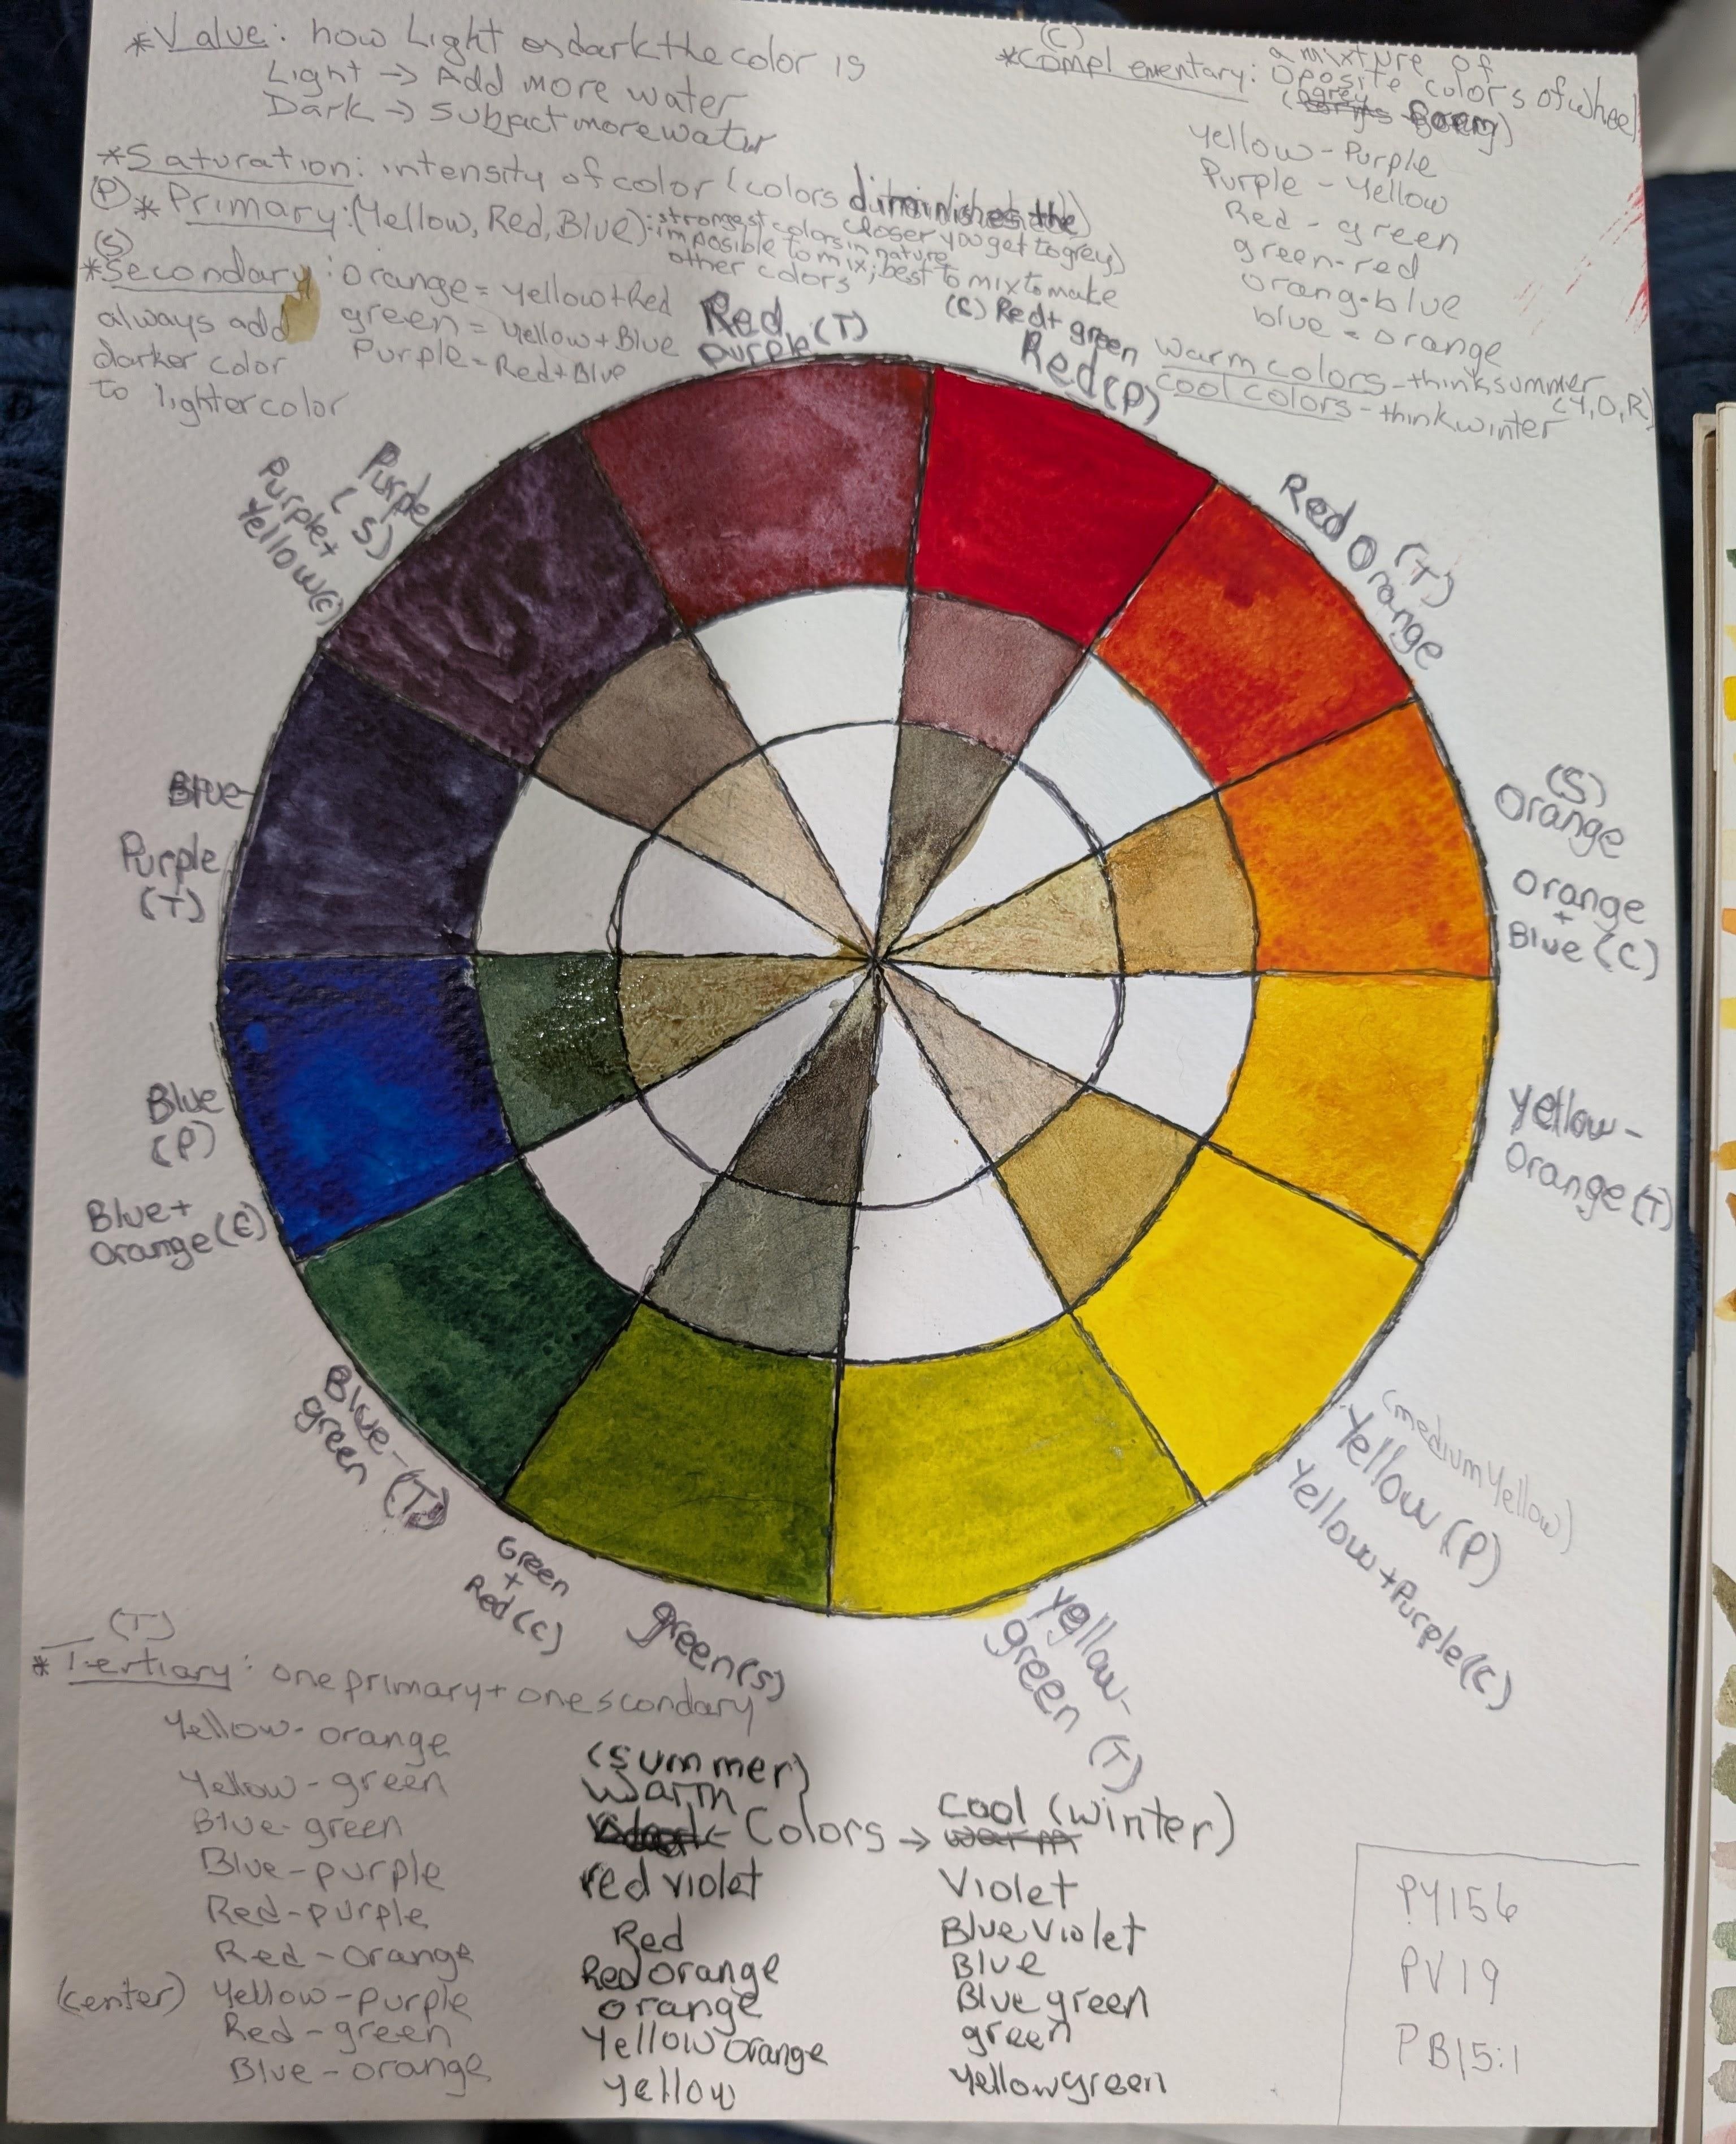 *Value: how Light or dark the color is
Light → Add more water
Dark → Subract more water
*Saturation: intensity of color (colors diminishes the
closer you get to grey)
(P)
*Primary: (Yellow, Red, Blue): strongest colors in nature
imposible to mix; best to mix to make
other colors
(S)
*Secondary: orange = yellow + Red
green = yellow + Blue
Purple = Red + Blue
always add
darker color
to lighter color
(C)
*Complementary: a mixture of
oposite colors of wheel
Yellow - Purple
Purple - Yellow
Red - green
green - red
orang - blue
blue = orange
warm colors - think summer
(Y, O, R)
cool colors - think winter
Red
purple (T)
(C) Red + green
Red (P)
Red Orange
(T)
(S)
Orange
orange
+
Blue (C)
yellow -
Orange (T)
(medium yellow)
Yellow (P)
Yellow + Purple (C)
yellow -
green (T)
green (S)
Green
+
Red (C)
Blue -
green (T)
Blue
(P)
Blue +
orange (C)
Blue
Purple
(T)
Purple
(S)
Purple +
Yellow (C)
(T)
*Tertiary: one primary + one scondary
Yellow - orange
Yellow - green
Blue - green
Blue - purple
Red - purple
Red - orange
(center) Yellow - purple
Red - green
Blue - orange
(summer)
Warm
Colors → cool (winter)
red violet
Red
Red orange
orange
Yellow orange
yellow
Violet
Blue violet
Blue
Blue green
green
yellow green
PY156
PV19
PB15:1